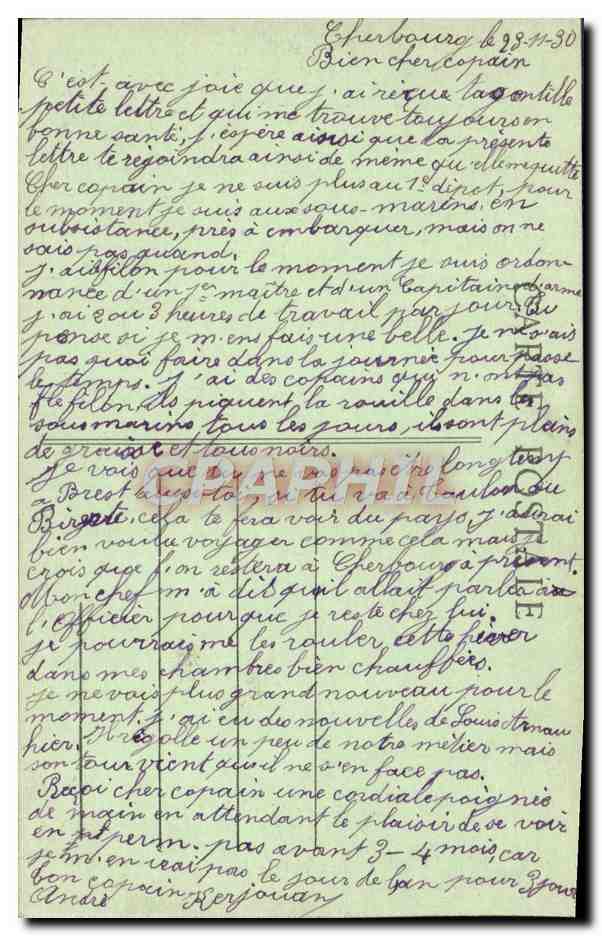 Cherbourg le 28-11-30
Bien cher copain
C'est avec joie que j'ai reçue ta gentille
petite lettre et qui me trouve toujours en
bonne santé, j'espère ainsi que la présente
lettre te rejoindra ainsi de meme qu'elle me quitte
Cher copain je ne suis plus au 1er dépot, pour
le moment je suis aux sous-marins, en
subsistance, près à embarquer, mais on ne
sais pas quand.
j'ai filon pour le moment je suis ordon-
nance d'un 1er maître et d'un Capitain d'arme
j'ai 2 ou 3 heures de travail par jour. Tu
pense si je m'en fais une belle. Je ne sais
pas quoi faire dans la journée pour passe
le temps. j'ai des copains qui n'ont pas
le filon, ils piquent la rouille dans les
sous marins tous les jours, ils sont pleins
de graisse et tous noirs.
je vois que tu ne vas pas être longtemp
à Brest aussi toi, tu va à Toulon ou
Bizerte, cela te fera voir du pays, j'aurai
bien voulu voyager comme cela mais je
crois que l'on restera à Cherbourg à présent.
Mon chef m'a dit qu'il allait parler à
l'officier pour que je reste chez lui.
je pourrais me les rouler cette hiver
dans mes chambres bien chauffées.
je ne vois plus grand nouveau pour le
moment, j'ai eu des nouvelles de Louis Arnau
hier. Il rigolle un peu de notre métier mais
son tour vient qu'il ne s'en face pas.
Reçoi cher copain une cordiale poignée
de main en attendant le plaisir de se voir
en perm. pas avant 3-4 mois, car
je m'en irai pas le jour de l'an pour 3 jours
bon copain Kerjouan
André
CARTE POSTALE
CPAPHIL